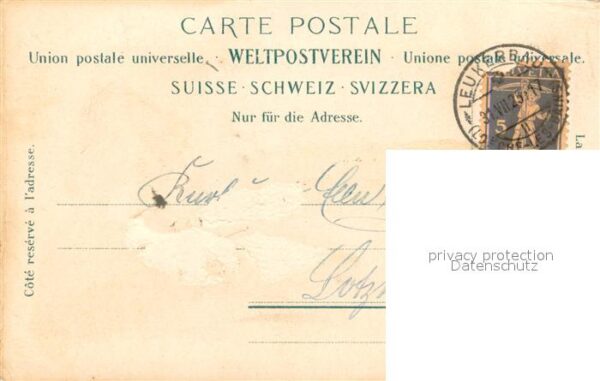 CARTE POSTALE
Union postale universelle. · WELTPOSTVEREIN · Unione postale universale.
SUISSE · SCHWEIZ · SVIZZERA
Nur für die Adresse.
Côté resérvé à l'adresse.
LEUKERBAD
31.VII.25.17
5
La
privacy protection
Datenschutz